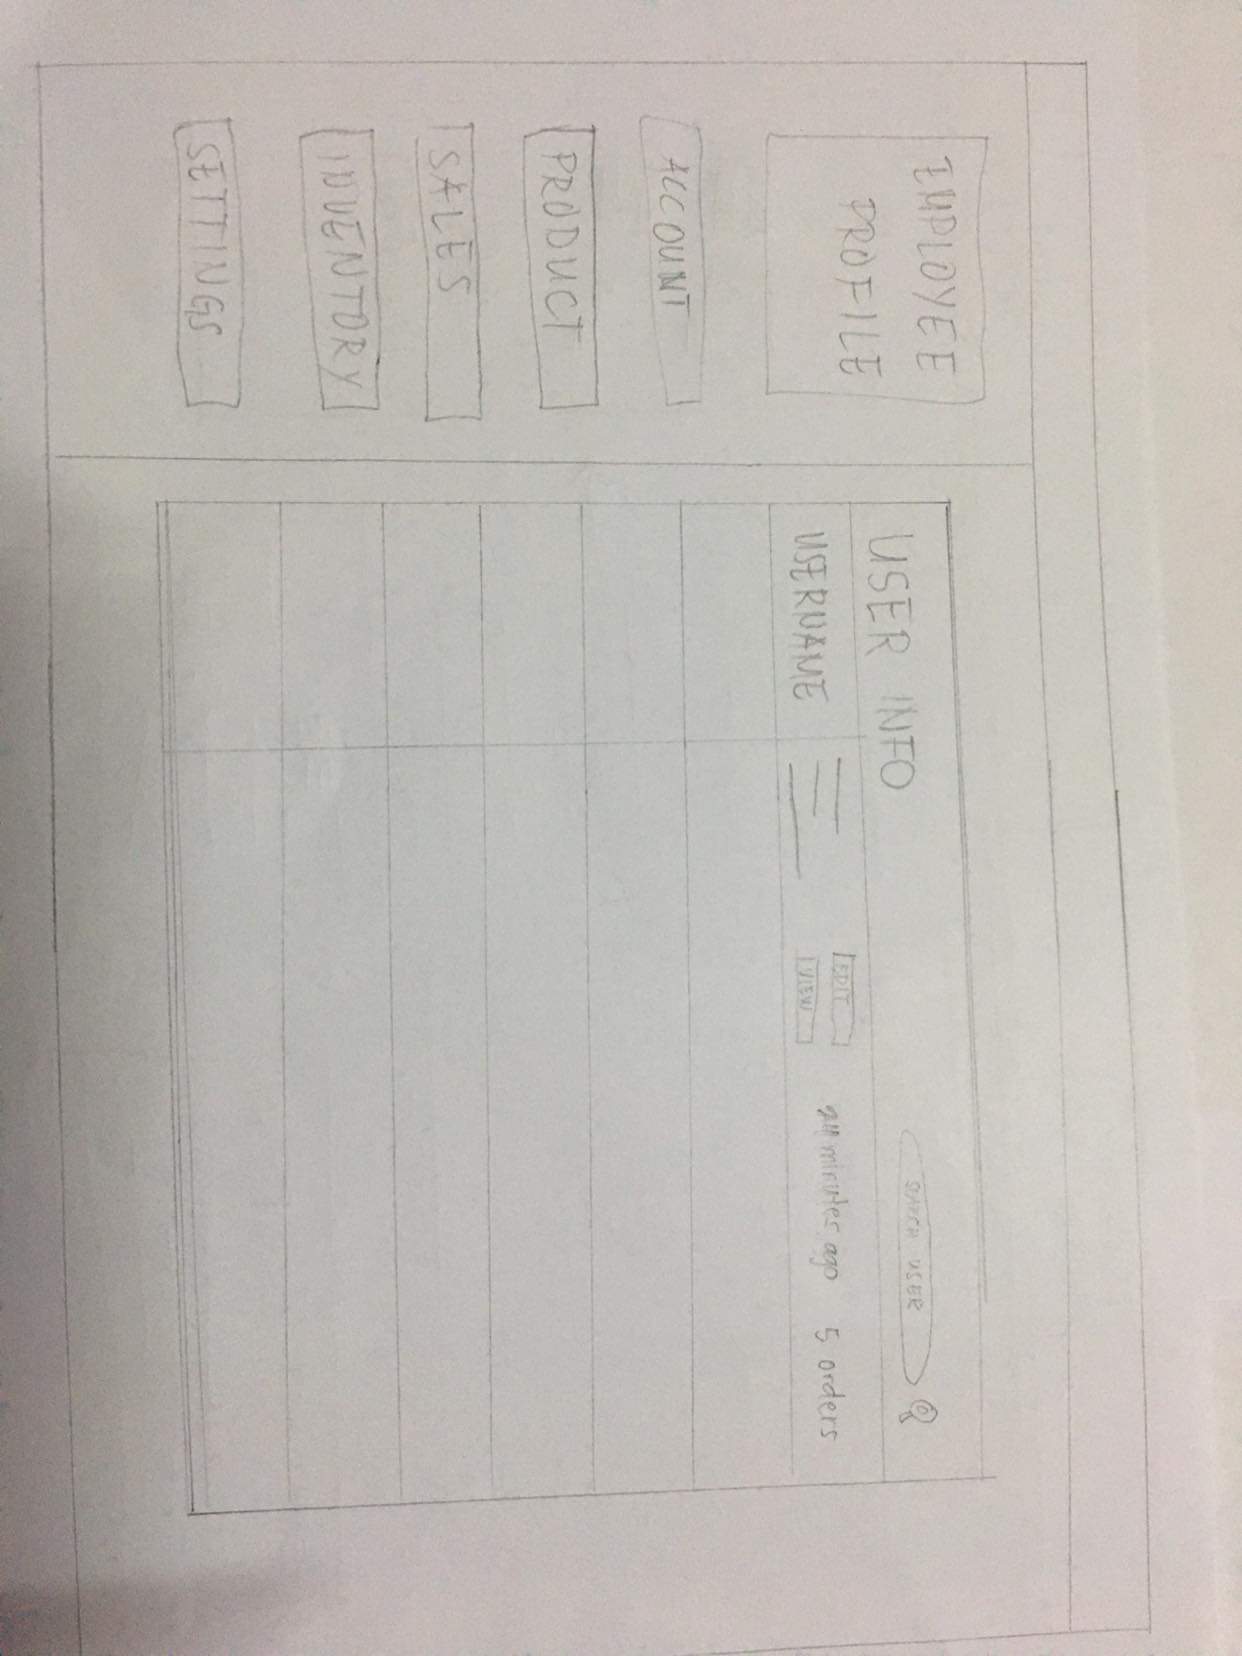 EMPLOYEE
PROFILE
ACCOUNT
PRODUCT
SALES
INVENTORY
SETTINGS
USER INFO
SEARCH USER
USERNAME
EDIT
VIEW
24 minutes ago
5 orders